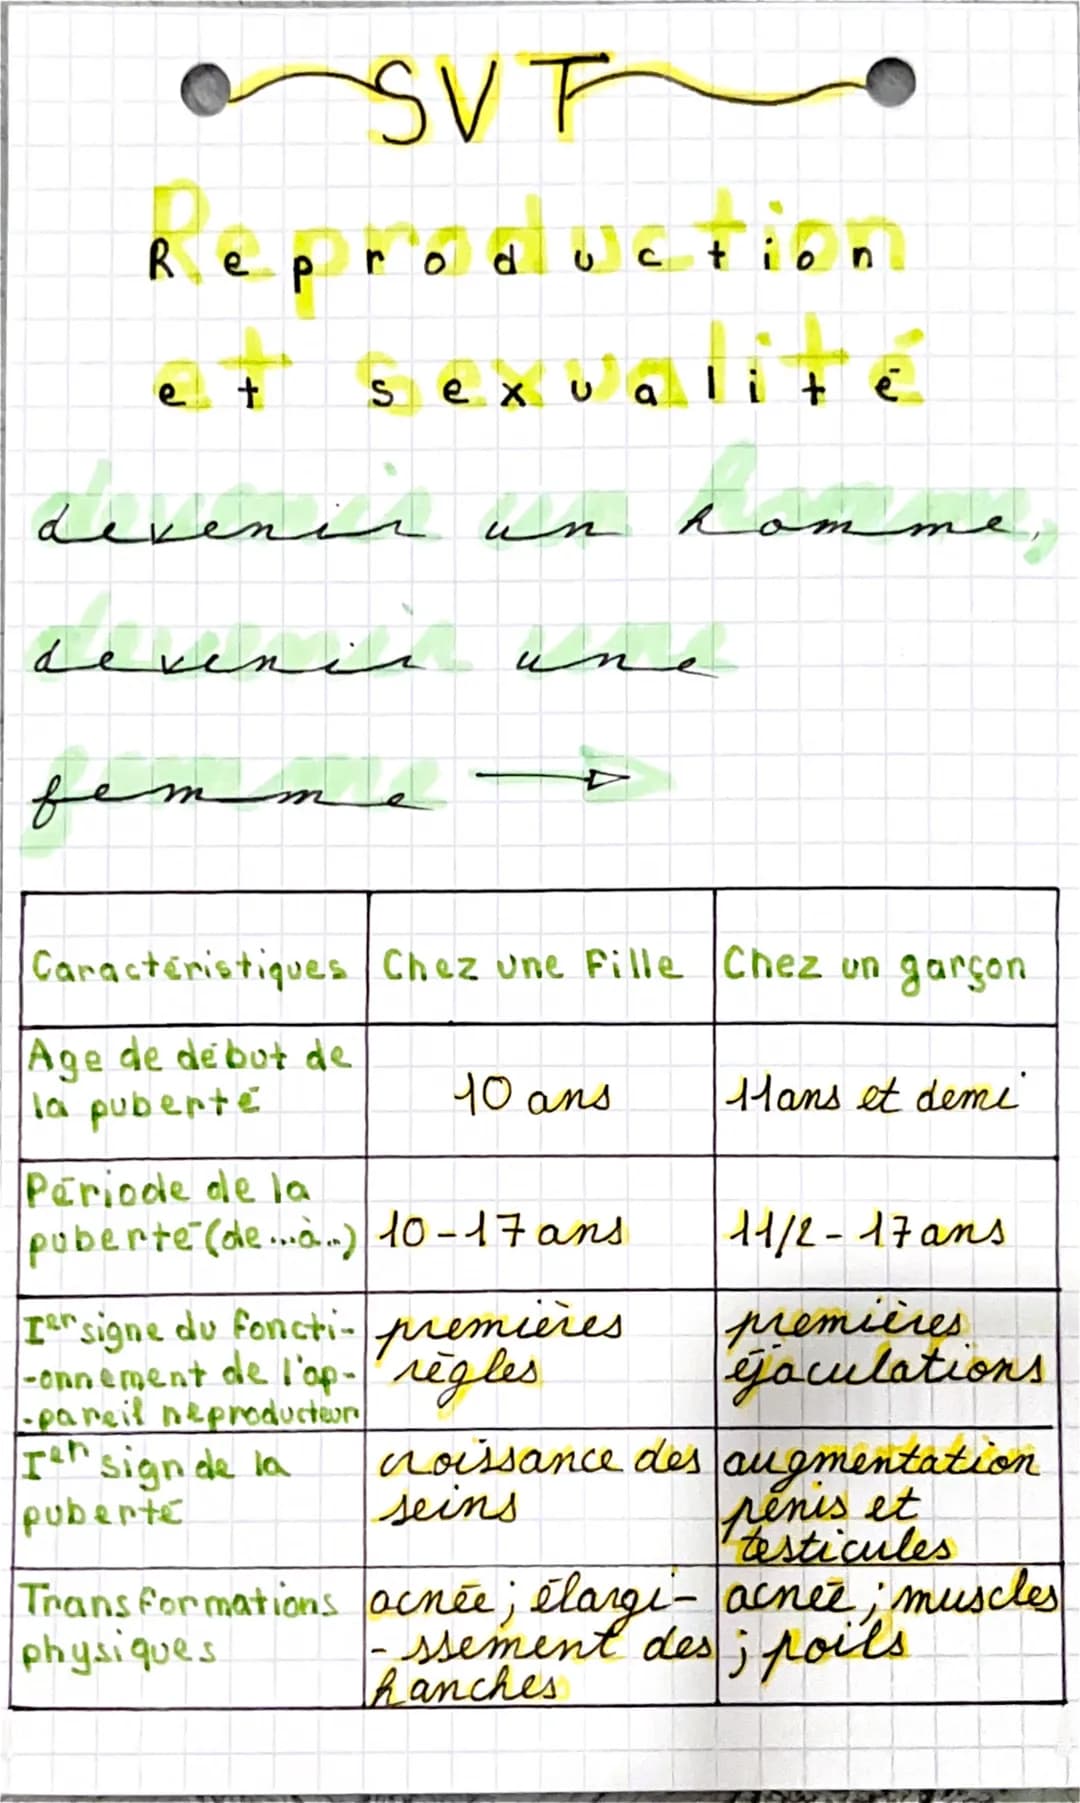 SVT
Reproduction
et sexualité
devenir un homme,
devenir une
femme →
Caractéristiques
Chez une Fille
Chez un garçon
Age de début de
la puberté
10 ans
11ans et demi
Période de la
puberté (de...à...)
10-17 ans
11/2-17ans
Ier signe du foncti-
-onnement de l'ap-
-pareil reproducteur
premières
règles
premières
éjaculations
Ier sign de la
puberté
croissance des
seins
augmentation
pénis et
testicules
Transformations
physiques
acnée; élargi-
-ssement des
hanches
acnée; muscles
; poils